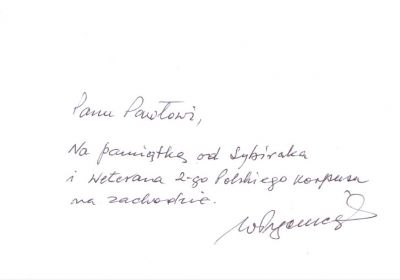 Panu Pawłowi,
Na pamiątkę od Sybiraka
i weterana 2-go Polskiego Korpusu
na zachodzie.